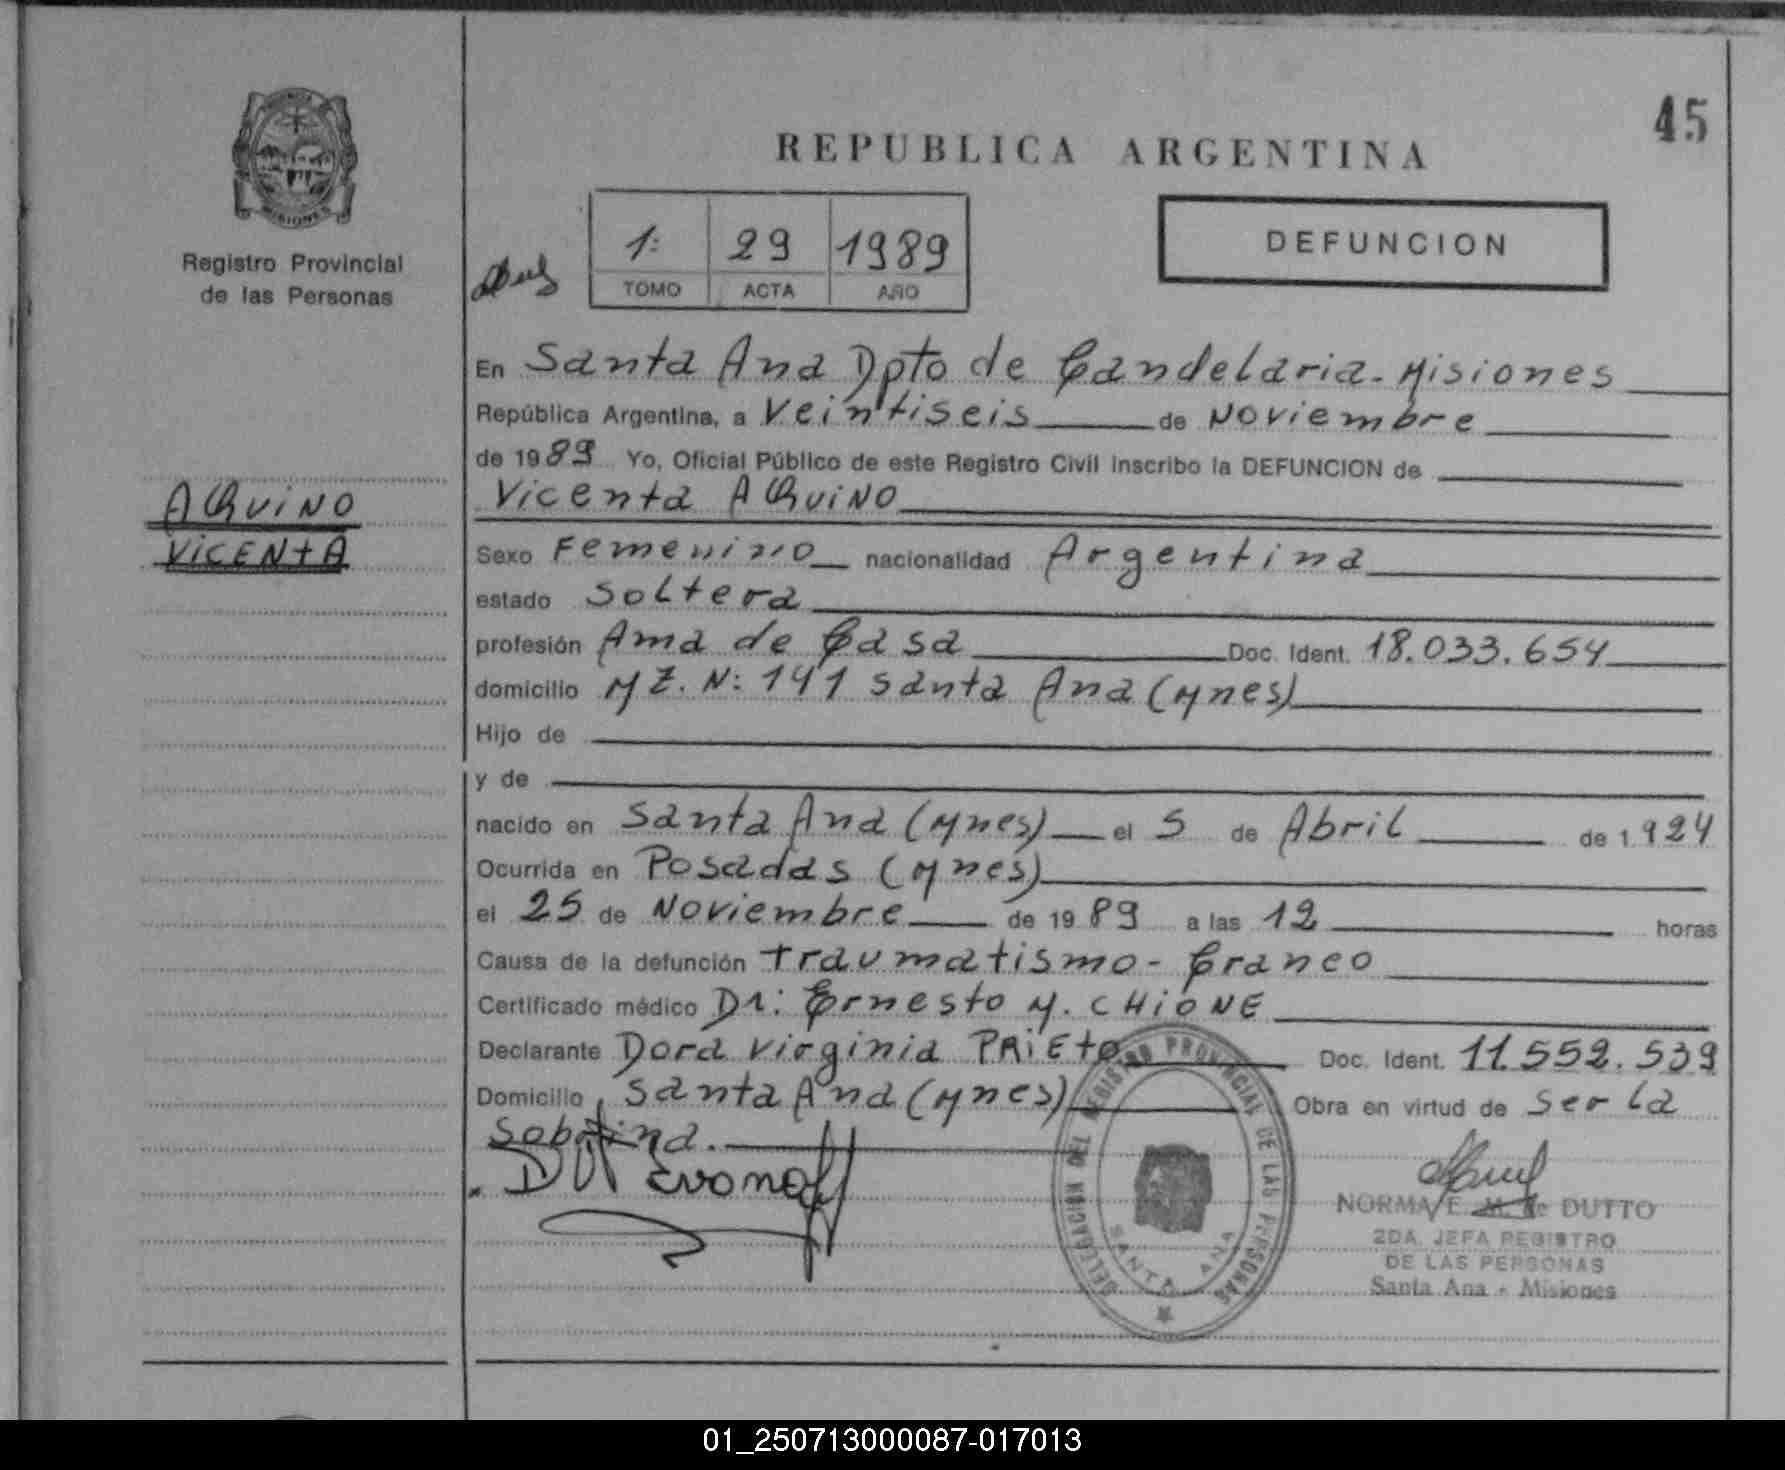 45
REPUBLICA ARGENTINA
PROVINCIA
MISIONES
Registro Provincial
de las Personas
1: 29 1989
TOMO ACTA AÑO
DEFUNCION
AQUINO
VICENTA
En Santa Ana Dpto de Candelaria - Misiones
República Argentina, a Veintiseis de Noviembre
de 1989 Yo, Oficial Público de este Registro Civil inscribo la DEFUNCION de
Vicenta AQUINO
Sexo Femenino nacionalidad Argentina
estado Soltera
profesión Ama de Casa Doc. Ident. 18.033.654
domicilio MZ. N: 141 Santa Ana (Mnes)
Hijo de
y de
nacido en Santa Ana (Mnes) el 5 de Abril de 1.924
Ocurrida en Posadas (Mnes)
el 25 de Noviembre de 1989 a las 12 horas
Causa de la defunción traumatismo - Craneo
Certificado médico Dr: Ernesto M. CHIONE
Declarante Dora Virginia PRIETO Doc. Ident. 11.552.539
Domicilio Santa Ana (Mnes) Obra en virtud de Ser la
Sobrina.
DELEGACION DEL REGISTRO PROVINCIAL DE LAS PERSONAS
SANTA ANA
NORMA E. M. de DUTTO
2DA. JEFA REGISTRO
DE LAS PERSONAS
Santa Ana - Misiones
01_250713000087-017013